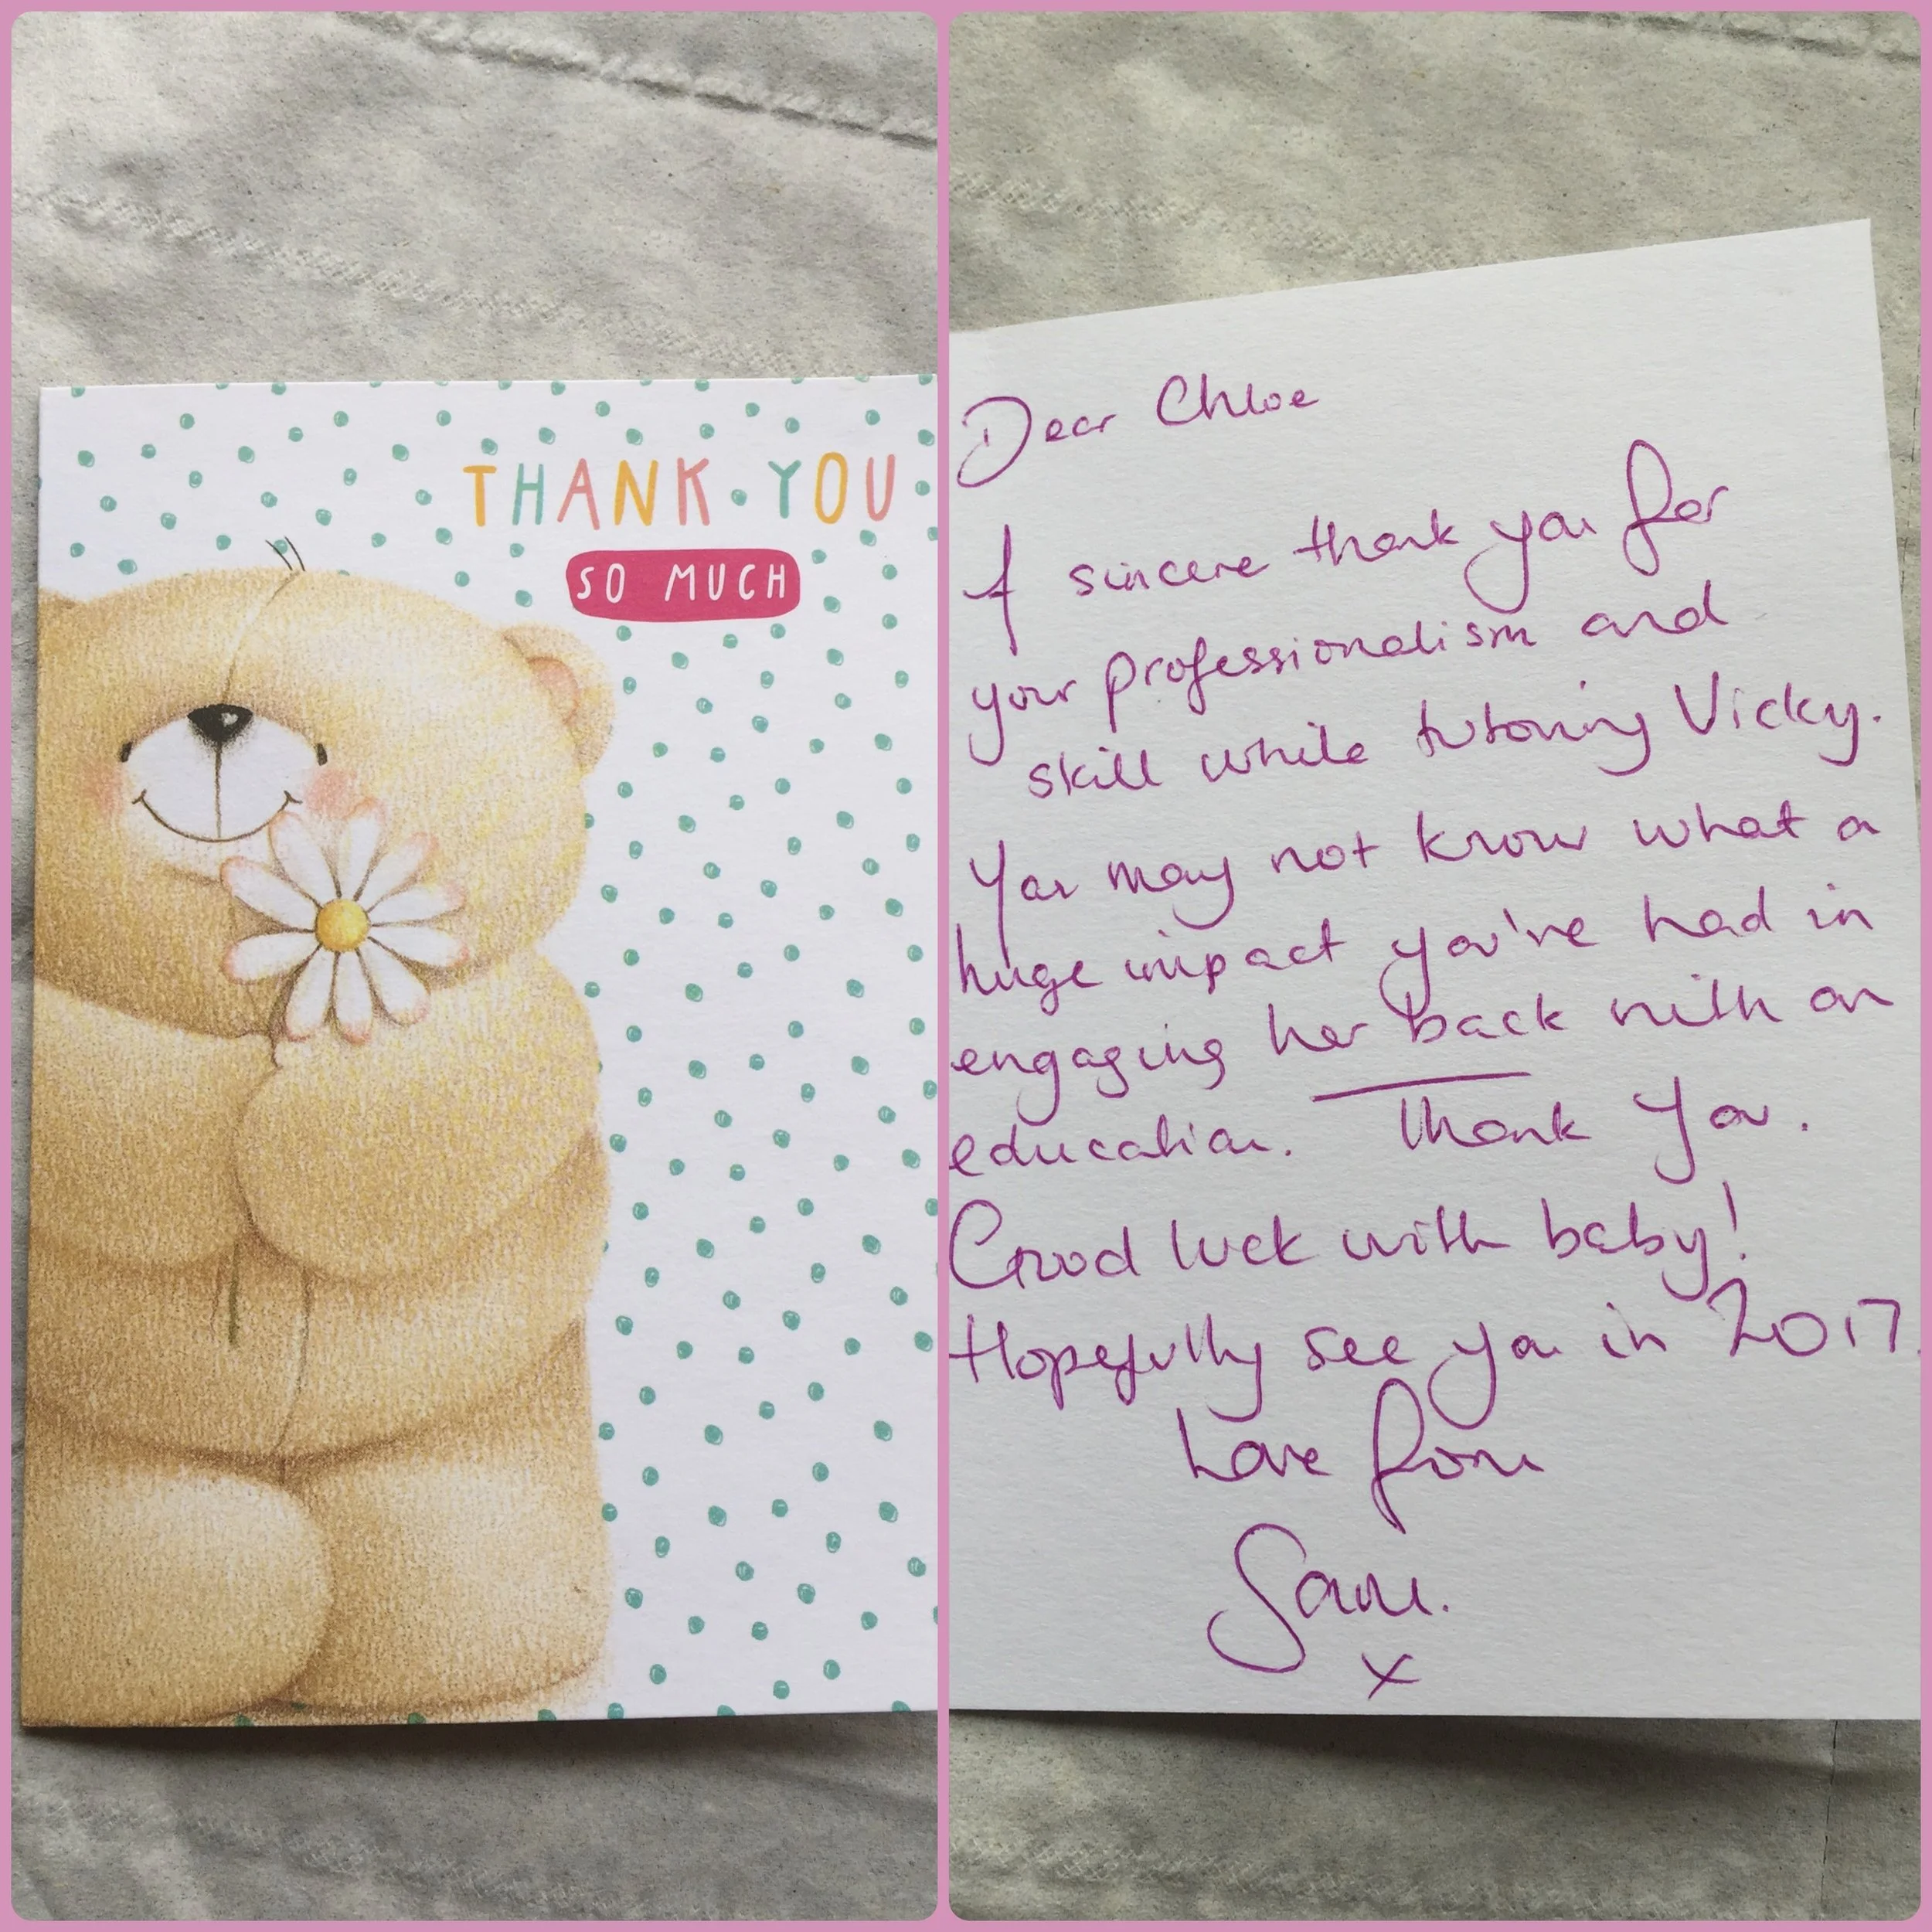 THANK YOU
SO MUCH
Dear Chloe
A sincere thank you for
your professionalism and
skill while tutoring Vicky.
You may not know what a
huge impact you've had in
engaging her back with an
education. Thank You.
Good luck with baby!
Hopefully see you in 2017.
Love from
x